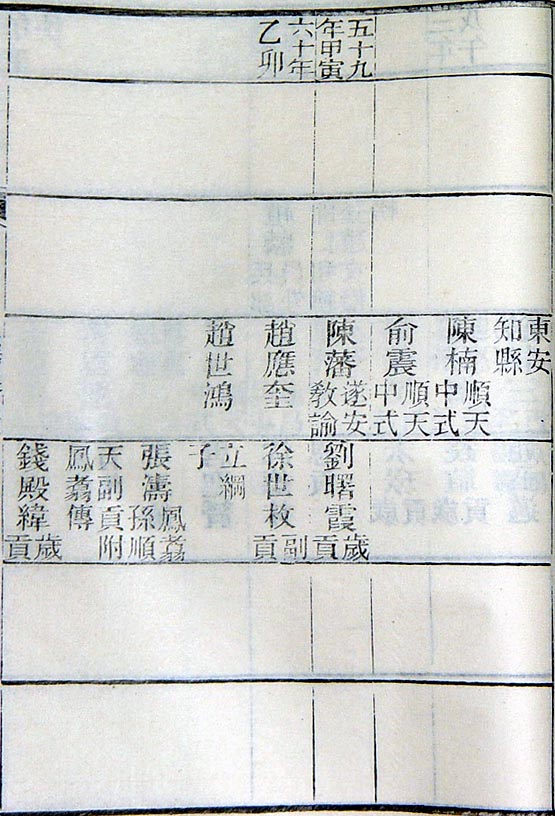 五十九
年甲寅
六十年
乙卯
東安
知縣
陳楠順天
中式
俞震順天
中式
陳藩遂安
敎諭
趙應奎
趙世鴻
劉曙霞歲
貢
徐世枚副
貢
立綱
子
張濤鳳翥
孫順
天副貢附
鳳翥傳
錢殿緯歲
貢